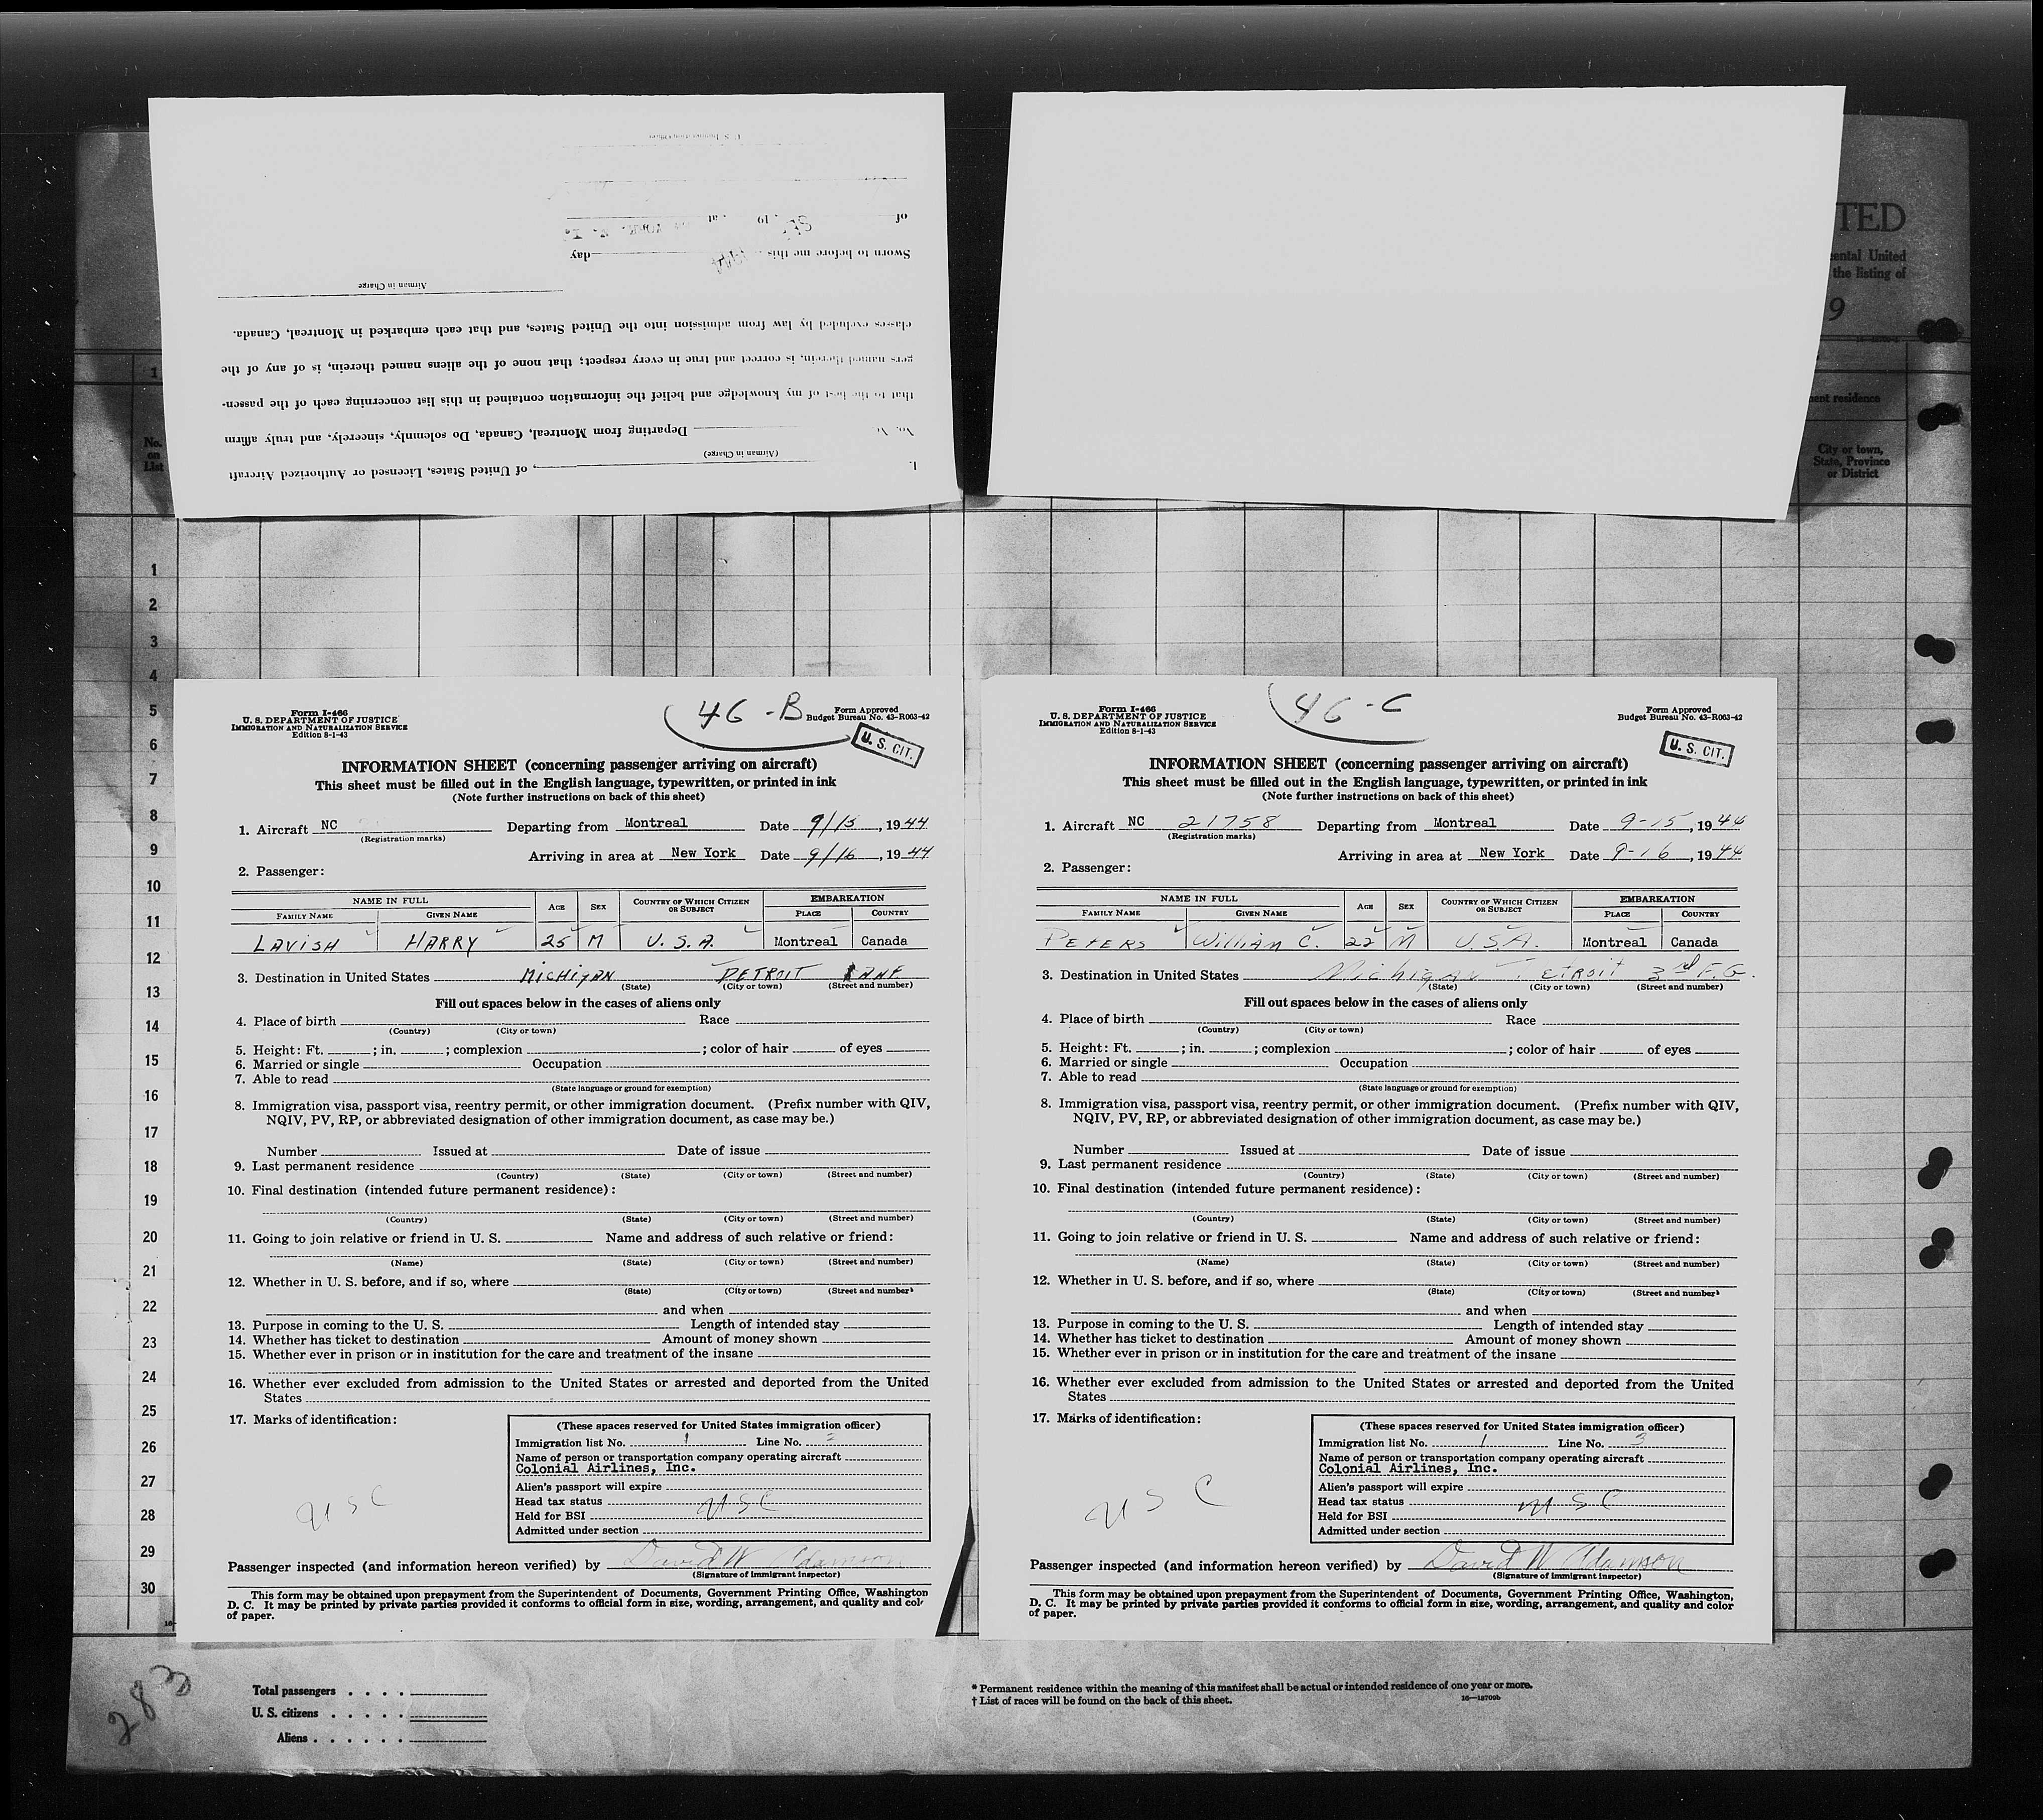 U. S. Immigration Officer
of , 19 , at
Sworn to before me this day
Airman in Charge
classes excluded by law from admission into the United States, and that each embarked in Montreal, Canada.
gers named therein, is correct and true in every respect; that none of the aliens named therein, is of any of the
that to the best of my knowledge and belief the information contained in this list concerning each of the passen-
Departing from Montreal, Canada, Do solemnly, sincerely, and truly affirm
(Airman in Charge)
I, , of United States, Licensed or Authorized Aircraft
TED
ental United
the listing of
9
ent residence
City or town,
State, Province
or District
No.
on
List
1
1
2
3
4
5
6
7
8
9
10
11
12
13
14
15
16
17
18
19
20
21
22
23
24
25
26
27
28
29
30
Form I-466
U. S. DEPARTMENT OF JUSTICE
IMMIGRATION AND NATURALIZATION SERVICE
Edition 8-1-43
46-B
Form Approved
Budget Bureau No. 43-R063-42
U. S. CIT.
INFORMATION SHEET (concerning passenger arriving on aircraft)
This sheet must be filled out in the English language, typewritten, or printed in ink
(Note further instructions on back of this sheet)
1. Aircraft NC Departing from Montreal Date 9/15, 1944
(Registration marks)
Arriving in area at New York Date 9/16, 1944
2. Passenger:
NAME IN FULL AGE SEX COUNTRY OF WHICH CITIZEN OR SUBJECT EMBARKATION
FAMILY NAME GIVEN NAME PLACE COUNTRY
LAVISH HARRY 25 M U.S.A. Montreal Canada
3. Destination in United States MICHIGAN DETROIT
(State) (City or town) (Street and number)
Fill out spaces below in the cases of aliens only
4. Place of birth Race
(Country) (City or town)
5. Height: Ft. ; in. ; complexion ; color of hair of eyes
6. Married or single Occupation
7. Able to read
(State language or ground for exemption)
8. Immigration visa, passport visa, reentry permit, or other immigration document. (Prefix number with QIV,
NQIV, PV, RP, or abbreviated designation of other immigration document, as case may be.)
Number Issued at Date of issue
9. Last permanent residence
(Country) (State) (City or town) (Street and number)
10. Final destination (intended future permanent residence):
(Country) (State) (City or town) (Street and number)
11. Going to join relative or friend in U. S. Name and address of such relative or friend:
(Name) (State) (City or town) (Street and number)
12. Whether in U. S. before, and if so, where
(State) (City or town) (Street and number)
and when
13. Purpose in coming to the U. S. Length of intended stay
14. Whether has ticket to destination Amount of money shown
15. Whether ever in prison or in institution for the care and treatment of the insane
16. Whether ever excluded from admission to the United States or arrested and deported from the United
States
17. Marks of identification:
(These spaces reserved for United States immigration officer)
Immigration list No. 1 Line No. 2
Name of person or transportation company operating aircraft
Colonial Airlines, Inc.
Alien's passport will expire
Head tax status USC
Held for BSI
Admitted under section
USC
Passenger inspected (and information hereon verified) by David W Adamson
(Signature of immigrant inspector)
This form may be obtained upon prepayment from the Superintendent of Documents, Government Printing Office, Washington
D. C. It may be printed by private parties provided it conforms to official form in size, wording, arrangement, and quality and col
of paper.
Form I-466
U. S. DEPARTMENT OF JUSTICE
IMMIGRATION AND NATURALIZATION SERVICE
Edition 8-1-43
46-C
Form Approved
Budget Bureau No. 43-R063-42
U. S. CIT.
INFORMATION SHEET (concerning passenger arriving on aircraft)
This sheet must be filled out in the English language, typewritten, or printed in ink
(Note further instructions on back of this sheet)
1. Aircraft NC 21758 Departing from Montreal Date 9-15, 1944
(Registration marks)
Arriving in area at New York Date 9-16, 1944
2. Passenger:
NAME IN FULL AGE SEX COUNTRY OF WHICH CITIZEN OR SUBJECT EMBARKATION
FAMILY NAME GIVEN NAME PLACE COUNTRY
PETERS William C. 22 M U.S.A. Montreal Canada
3. Destination in United States Michigan ETROIT 3rd F.G.
(State) (City or town) (Street and number)
Fill out spaces below in the cases of aliens only
4. Place of birth Race
(Country) (City or town)
5. Height: Ft. ; in. ; complexion ; color of hair of eyes
6. Married or single Occupation
7. Able to read
(State language or ground for exemption)
8. Immigration visa, passport visa, reentry permit, or other immigration document. (Prefix number with QIV,
NQIV, PV, RP, or abbreviated designation of other immigration document, as case may be.)
Number Issued at Date of issue
9. Last permanent residence
(Country) (State) (City or town) (Street and number)
10. Final destination (intended future permanent residence):
(Country) (State) (City or town) (Street and number)
11. Going to join relative or friend in U. S. Name and address of such relative or friend:
(Name) (State) (City or town) (Street and number)
12. Whether in U. S. before, and if so, where
(State) (City or town) (Street and number)
and when
13. Purpose in coming to the U. S. Length of intended stay
14. Whether has ticket to destination Amount of money shown
15. Whether ever in prison or in institution for the care and treatment of the insane
16. Whether ever excluded from admission to the United States or arrested and deported from the United
States
17. Marks of identification:
(These spaces reserved for United States immigration officer)
Immigration list No. 1 Line No. 3
Name of person or transportation company operating aircraft
Colonial Airlines, Inc.
Alien's passport will expire
Head tax status USC
Held for BSI
Admitted under section
USC
Passenger inspected (and information hereon verified) by David W Adamson
(Signature of immigrant inspector)
This form may be obtained upon prepayment from the Superintendent of Documents, Government Printing Office, Washington,
D. C. It may be printed by private parties provided it conforms to official form in size, wording, arrangement, and quality and color
of paper.
283
Total passengers
U. S. citizens
Aliens
* Permanent residence within the meaning of this manifest shall be actual or intended residence of one year or more.
† List of races will be found on the back of this sheet.
16—18709b